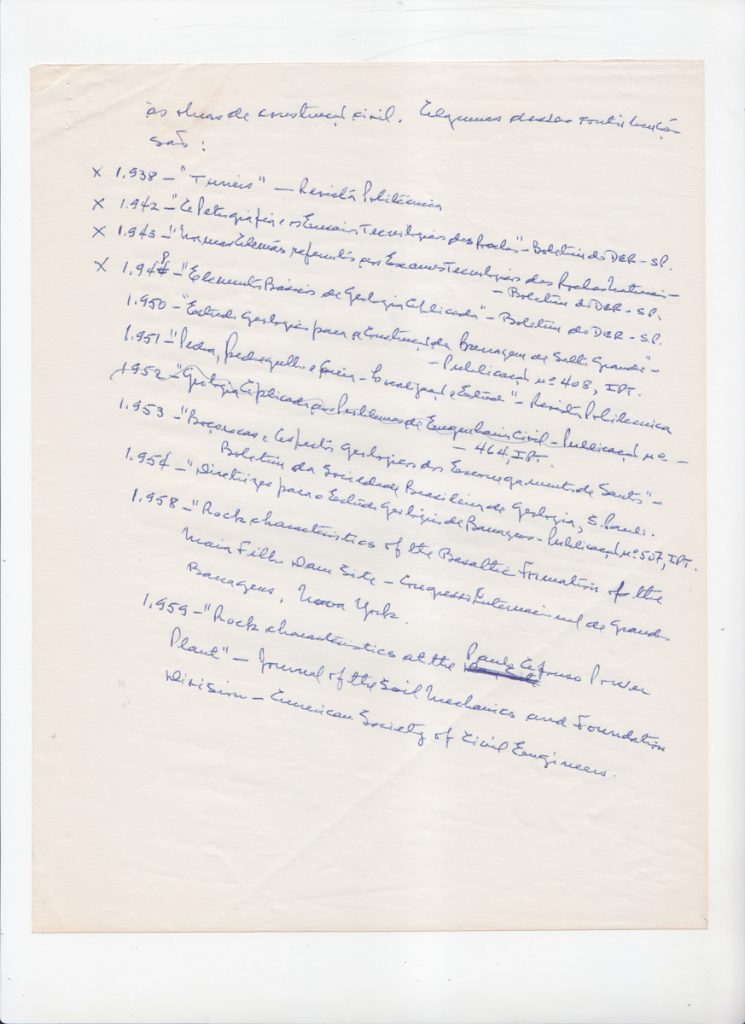 às obras de construção civil. Algumas dessas contribuições
são:
x 1.938 – "Túneis" – Revista Politécnica
x 1.942 – "A Petrografia e os Ensaios Tecnológicos das Rochas" – Boletim do DER – SP.
x 1.943 – "Normas Alemãs referentes aos Exames Tecnológicos das Rochas Naturais –
– Boletim do DER – SP.
x 1.948 – "Elementos Básicos de Geologia Aplicada" – Boletim do DER – SP.
1.950 – "Estudo Geológico para a Construção da Barragem de Salto Grande" –
– Publicação nº 408, IPT.
1.951 – "Pedra, Pedregulho e Areia – Localização e Estudo" – Revista Politécnica
1952 – "Geologia Aplicada aos Problemas de Engenharia Civil – Publicação nº –
– 464, IPT.
1.953 – "Boçorocas e Aspectos Geológicos dos Escorregamentos de Santos" –
Boletim da Sociedade Brasileira de Geologia, S. Paulo.
1.954 – "Diretrizes para o Estudo Geológico de Barragens – Publicação nº 507, IPT.
1.958 – "Rock characteristics of the Basaltic Formation of the
Dam Site – Congresso Internacional de Grandes
Barragens, Nova York.
1.959 – "Rock characteristics at the Paulo Afonso Power
Plant" – Journal of the Soil Mechanics and Foundation
Division – American Society of Civil Engineers.